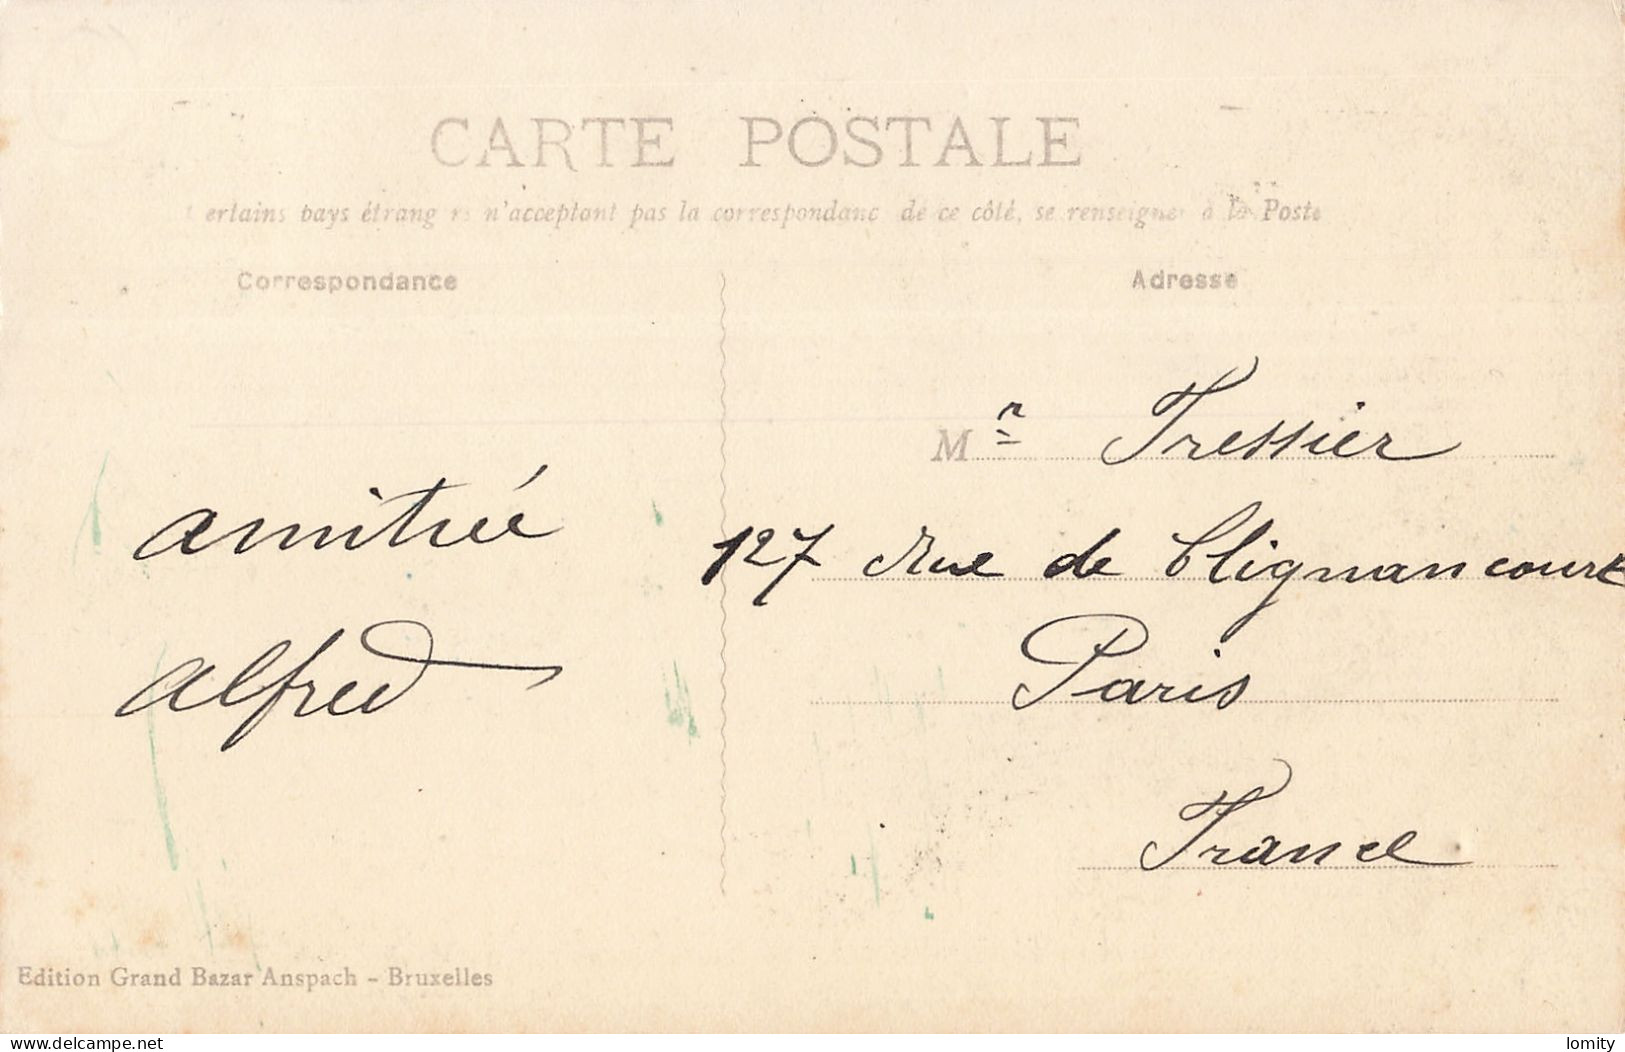 CARTE POSTALE
Certains pays étrangers n'acceptant pas la correspondance de ce côté, se renseigner à la Poste
Correspondance
Adresse
amitiée
Alfred
Mr Tressier
127 Rue de Clignancourt
Paris
France
Edition Grand Bazar Anspach - Bruxelles
www.delcampe.net
lomity